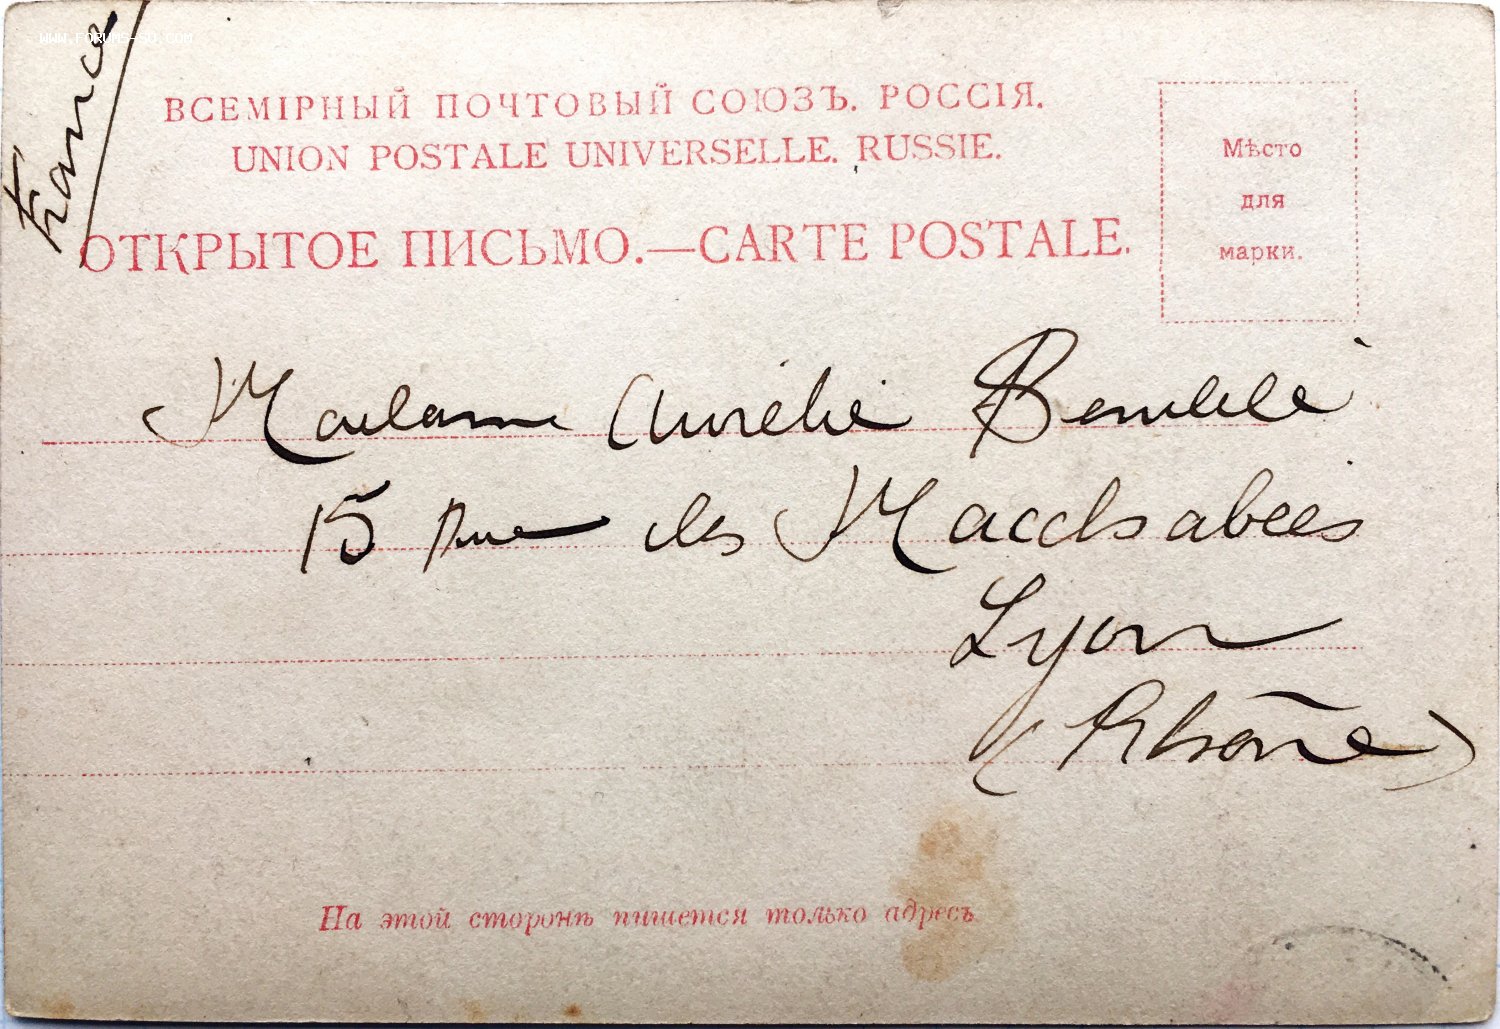 www.forums-su.com
France
ВСЕМІРНЫЙ ПОЧТОВЫЙ СОЮЗЪ. РОССІЯ.
UNION POSTALE UNIVERSELLE. RUSSIE.
ОТКРЫТОЕ ПИСЬМО.—CARTE POSTALE.
Мѣсто
для
марки.
Madame Aurélie
15 Rue des Macchabées
Lyon
(Rhône)
На этой сторонѣ пишется только адресъ